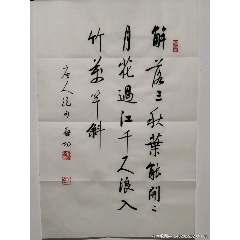 解落三秋葉能開二
月花過江千尺浪入
竹萬竿斜
唐人絕句 啟功